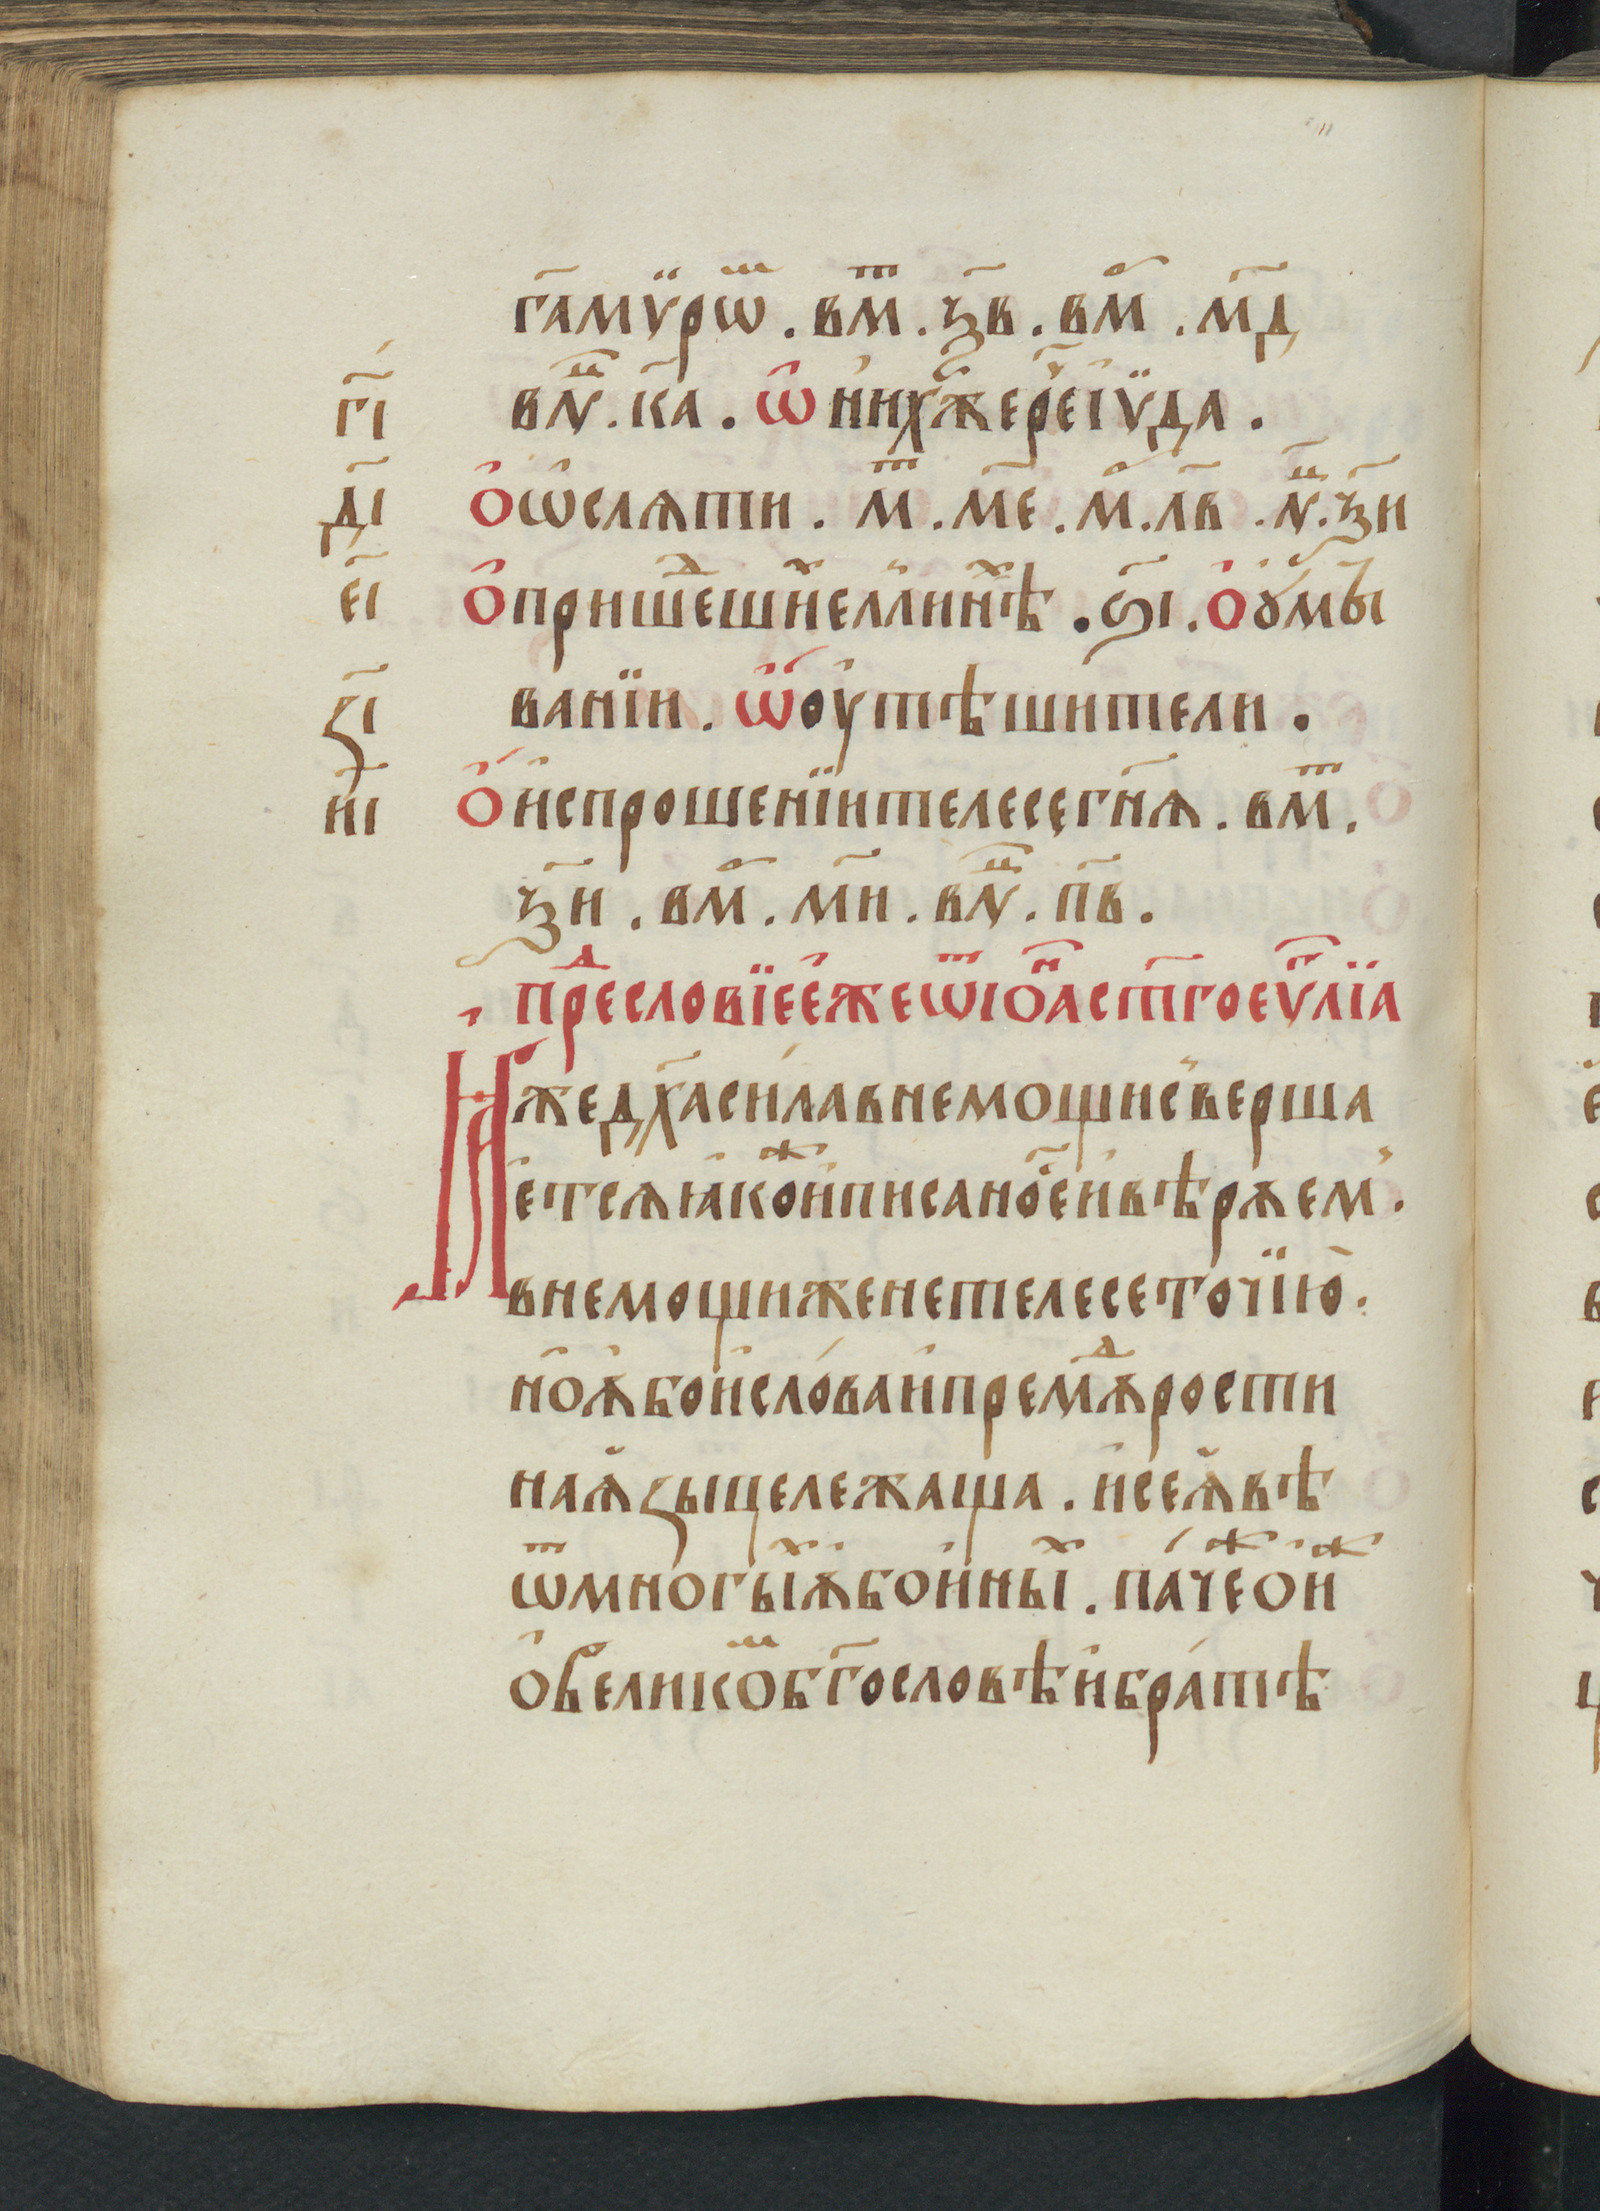 га҃ мѵ̈рѡⷨ . в м҃ⷮ . ѯ҃в . в мⷬ҃ . м҃д
гі҃ в лⷰ҃ . к҃а . ѡ҆ ни́хже рече і҆ю́да .
ді҃ о҆ ѡ҆слѧти . м҃ⷮ . м҃е . мⷬ҃ . л҃в . лⷰ҃ . ѯ҃и
еі҃ о҆ пришеⷣшиⷯ е҆ллинѣⷯ . ѕ҃і . о҆ ᲂу҆мы
ванїи . зі҃ ѡ҆ оу҆тѣшители .
иі҃ о҆ и҆спрошенїи телесе гн҃ѧ . в м҃ⷮ .
ѯ҃и . в мⷬ҃ . м҃и . в лⷰ҃ . п҃в .
преⷣсловїе е҆же ѿ іѡ҃а ст҃го еѵⷢ҇лїа
И҆же дх҃а си́ла в немощи съверша
е҆тсѧ ꙗ҆коⷤ и҆ писано е҆ и҆ вѣрꙋем .
в немощи же не телесе точїю .
но ᲂу҆бо и҆ сло́ва и҆ премⷣꙋрости
на ꙗ҆зыце лежаща . и҆ се ꙗ҆вѣ
ѿ многыⷯ ᲂу҆бо и҆ ины́ⷯ . па́чеⷤ о҆ниⷤ
о҆ великоⷨ бг҃ословѣ и҆ бра́тѣ